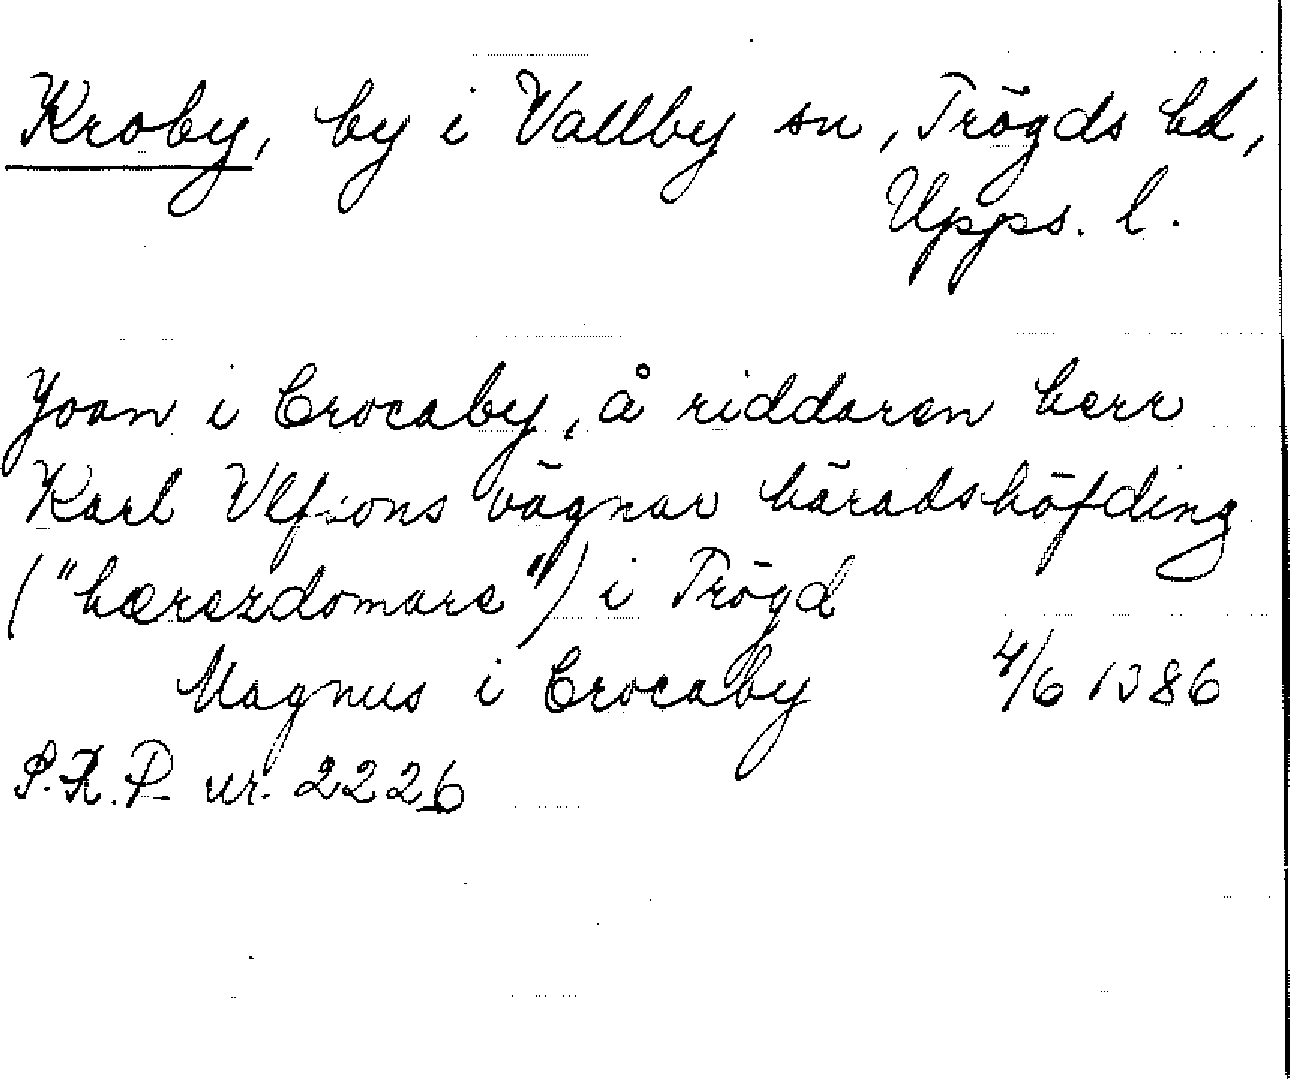 Kroby, by i Vallby sn, Trögds hd,
Upps. l.
Joan i Crocaby, å riddaren herr
Karl Ulfsons vägnar häradshöfding
("hærezdomare") i Trögd
Magnus i Crocaby 4/6 1386
S.R.P. nr. 2226